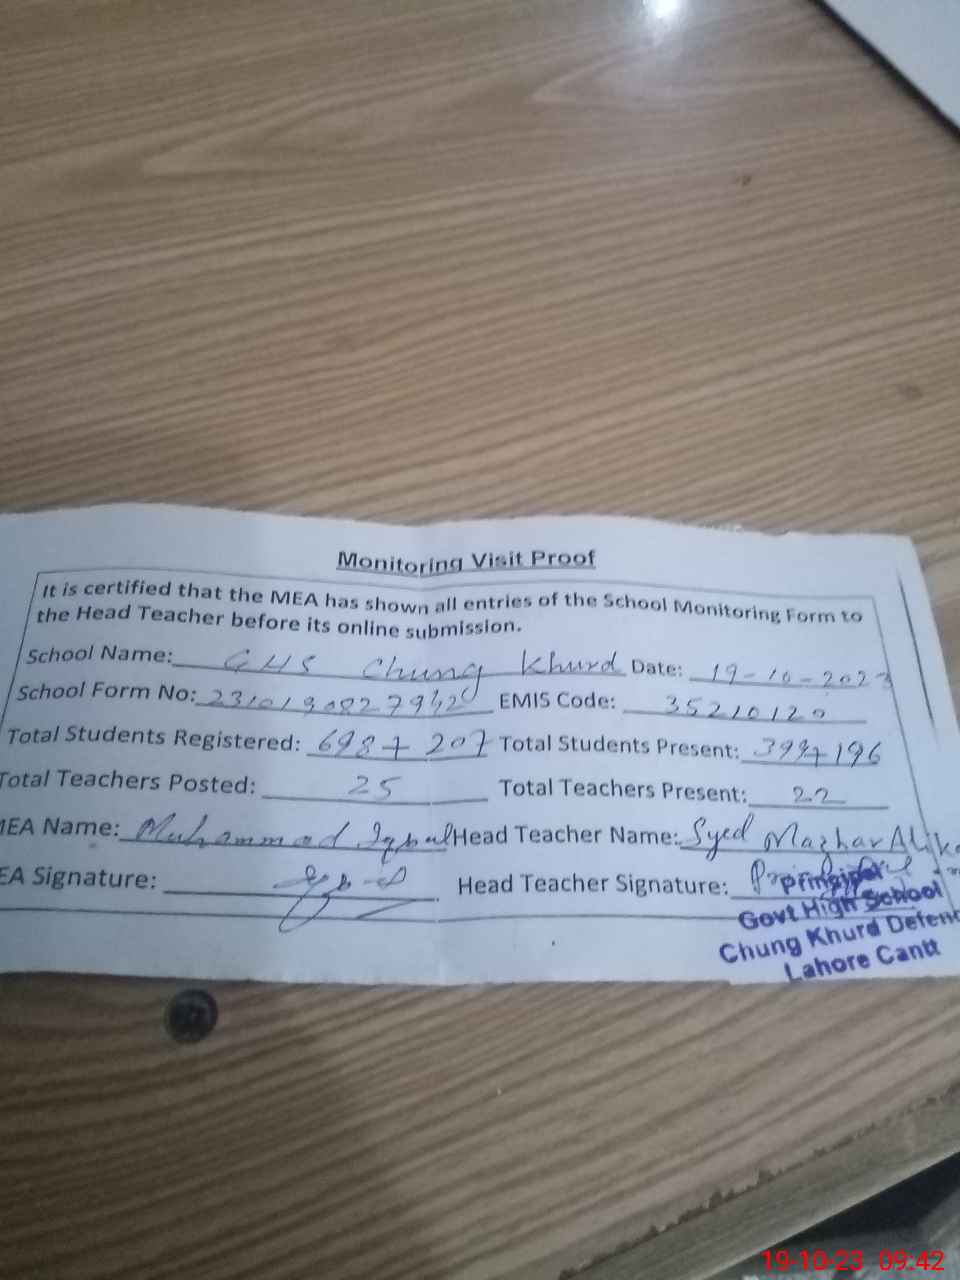 Monitoring Visit Proof
It is certified that the MEA has shown all entries of the School Monitoring Form to
the Head Teacher before its online submission.
School Name: GHS Chung Khurd Date: 19-10-2023
School Form No: EMIS Code: 35210120
Total Students Registered: 698+207 Total Students Present: 399+196
Total Teachers Posted: 25 Total Teachers Present: 22
MEA Name: Muhammad Iqbal Head Teacher Name: Syed Mazhar Ali
EA Signature: Head Teacher Signature:
Principal
Govt High School
Chung Khurd Defenc
Lahore Cantt
19-10-23 09:42